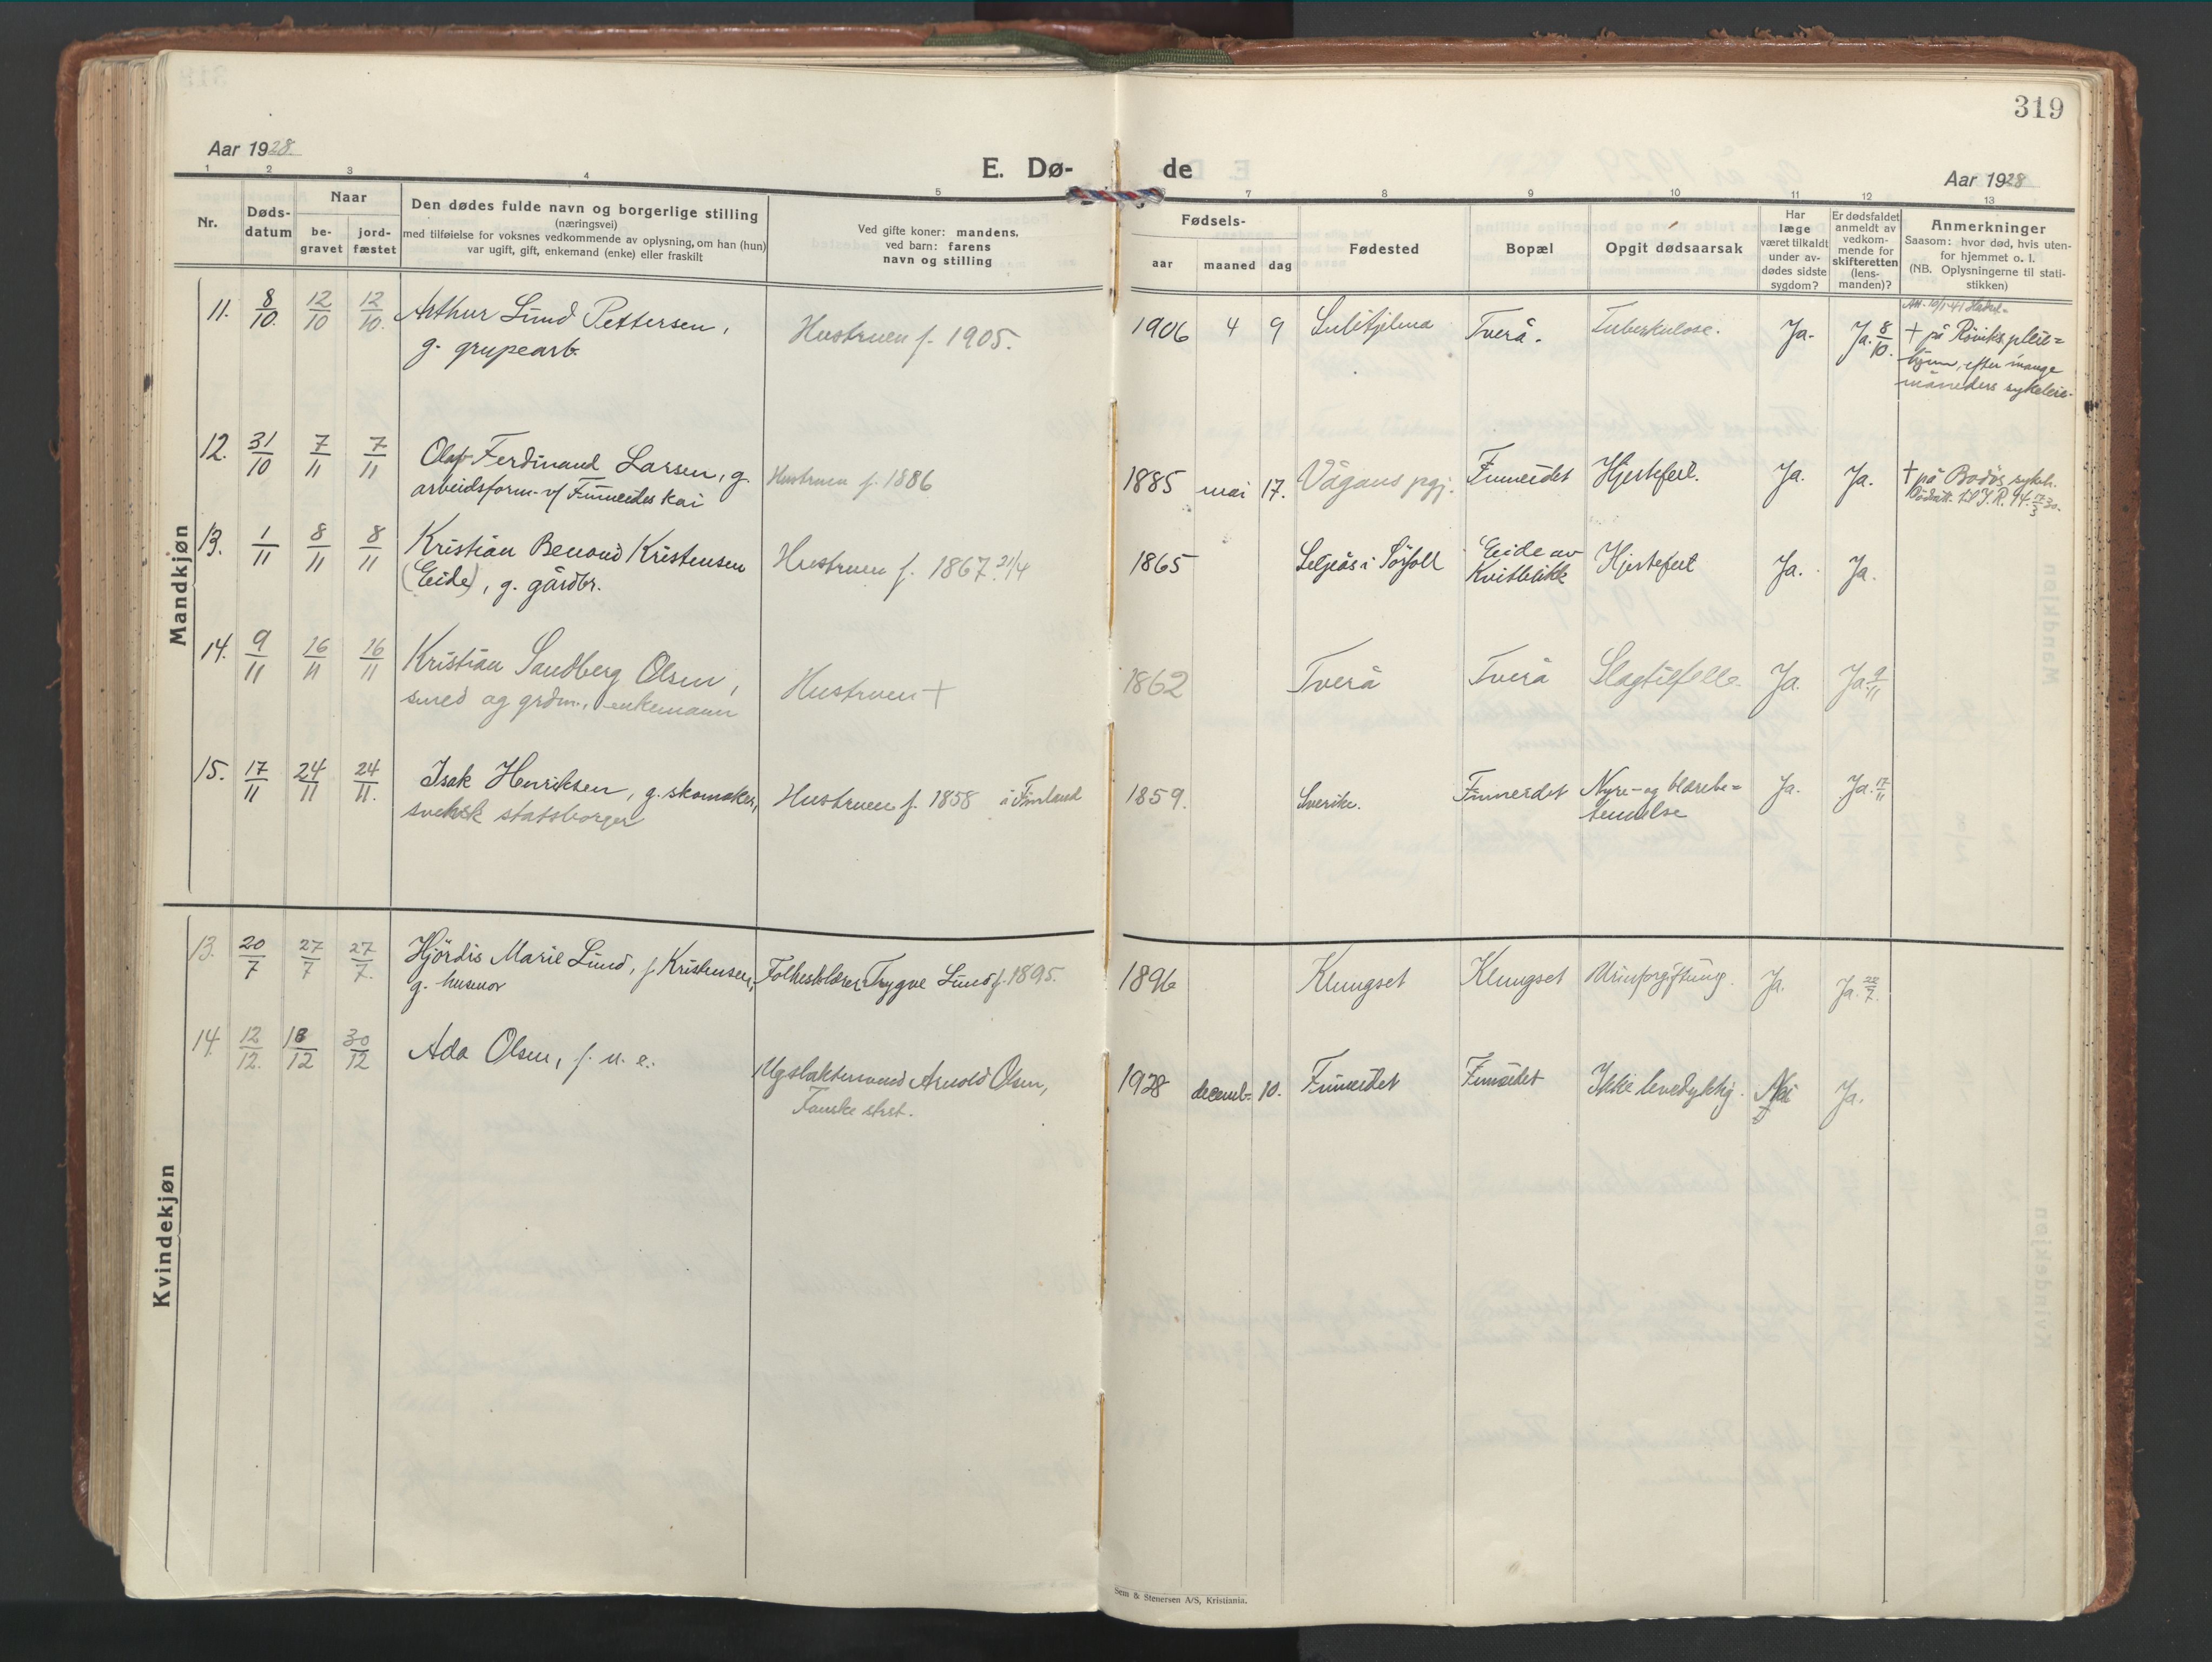 319
Aar 1928.
E. Dø-
de
Aar 1928
1 2 3 4 5 7 8 9 10 11 12 13
Nr.
Døds-
datum
Naar
be-
gravet
jord-
fæstet
Den dødes fulde navn og borgerlige stilling
(næringsvei)
med tilføielse for voksnes vedkommende av oplysning, om han (hun)
var ugift, gift, enkemand (enke) eller fraskilt
Ved gifte koner: mandens,
ved barn: farens
navn og stilling
Fødsels-
aar
maaned
dag
Fødested
Bopæl
Opgit dødsaarsak
Har
læge
været tilkaldt
under av-
dødes sidste
sygdom?
Er dødsfaldet
anmeldt av
vedkom-
mende for
skifteretten
(lens-
manden)?
Anmerkninger
Saasom: hvor død, hvis uten-
for hjemmet o. l.
(NB. Oplysningerne til stati-
stikken)
Mandkjøn
11. 8/10. 12/10 12/10. Arthur Lund Pettersen,
g. grupearb.
Hustruen f. 1905.
1906 4 9 Sulitjelma Tverå. Tuberkulose. Ja. Ja. 8/10.
† på Röviks pleie=
hjem, efter mange
måneders sykeleie.
12. 31/10 7/11 7/11 Olaf Ferdinand Larsen, g.
arbeidsform. v/ Finneides kai
Hustruen f. 1886
1885 mai 17. Vågans pgj. Finneidet Hjertefeil. Ja. Ja. † på Bodös sykeh.
13. 1/11 8/11 8/11 Kristian Benoni Kristensen
(Eide), g. gårdbr.
Hustruen f. 1867. 21/4
1865 Seljeås i Sörfoll Eide av
Kvitblikk
Hjertefeil Ja. Ja.
14. 9/11 16/11 16/11 Kristian Sandberg Olsen,
smed og grdm., enkemann
Hustruen †
1862 Tverå Tverå Slagtilfelle Ja. Ja. 9/11
15. 17/11 24/11 24/11. Isak Henriksen, g. skomaker,
svensk statsborger
Hustruen f. 1858 i Finland
1859. Sverike. Finneidet Nyre- og blærebe=
tennelse
Ja. Ja. 17/11
Kvindekjøn
13. 20/7 27/7 27/7. Hjördis Marie Lund, f. Kristensen,
g. husmor
Folkeskolelærer Trygve Lund f. 1895.
1896 Klungset Klungset Urinforgiftning. Ja. Ja. 22/7.
14. 12/12. 18/12 30/12 Ada Olsen, f. u. e.
Ugslaktersvend Arnold Olsen,
Fauske strst.
1928 decemb= 10. Finneidet Finneidet Ikke levedyktig. Nei Ja.
Sem & Stenersen A/S, Kristiania.